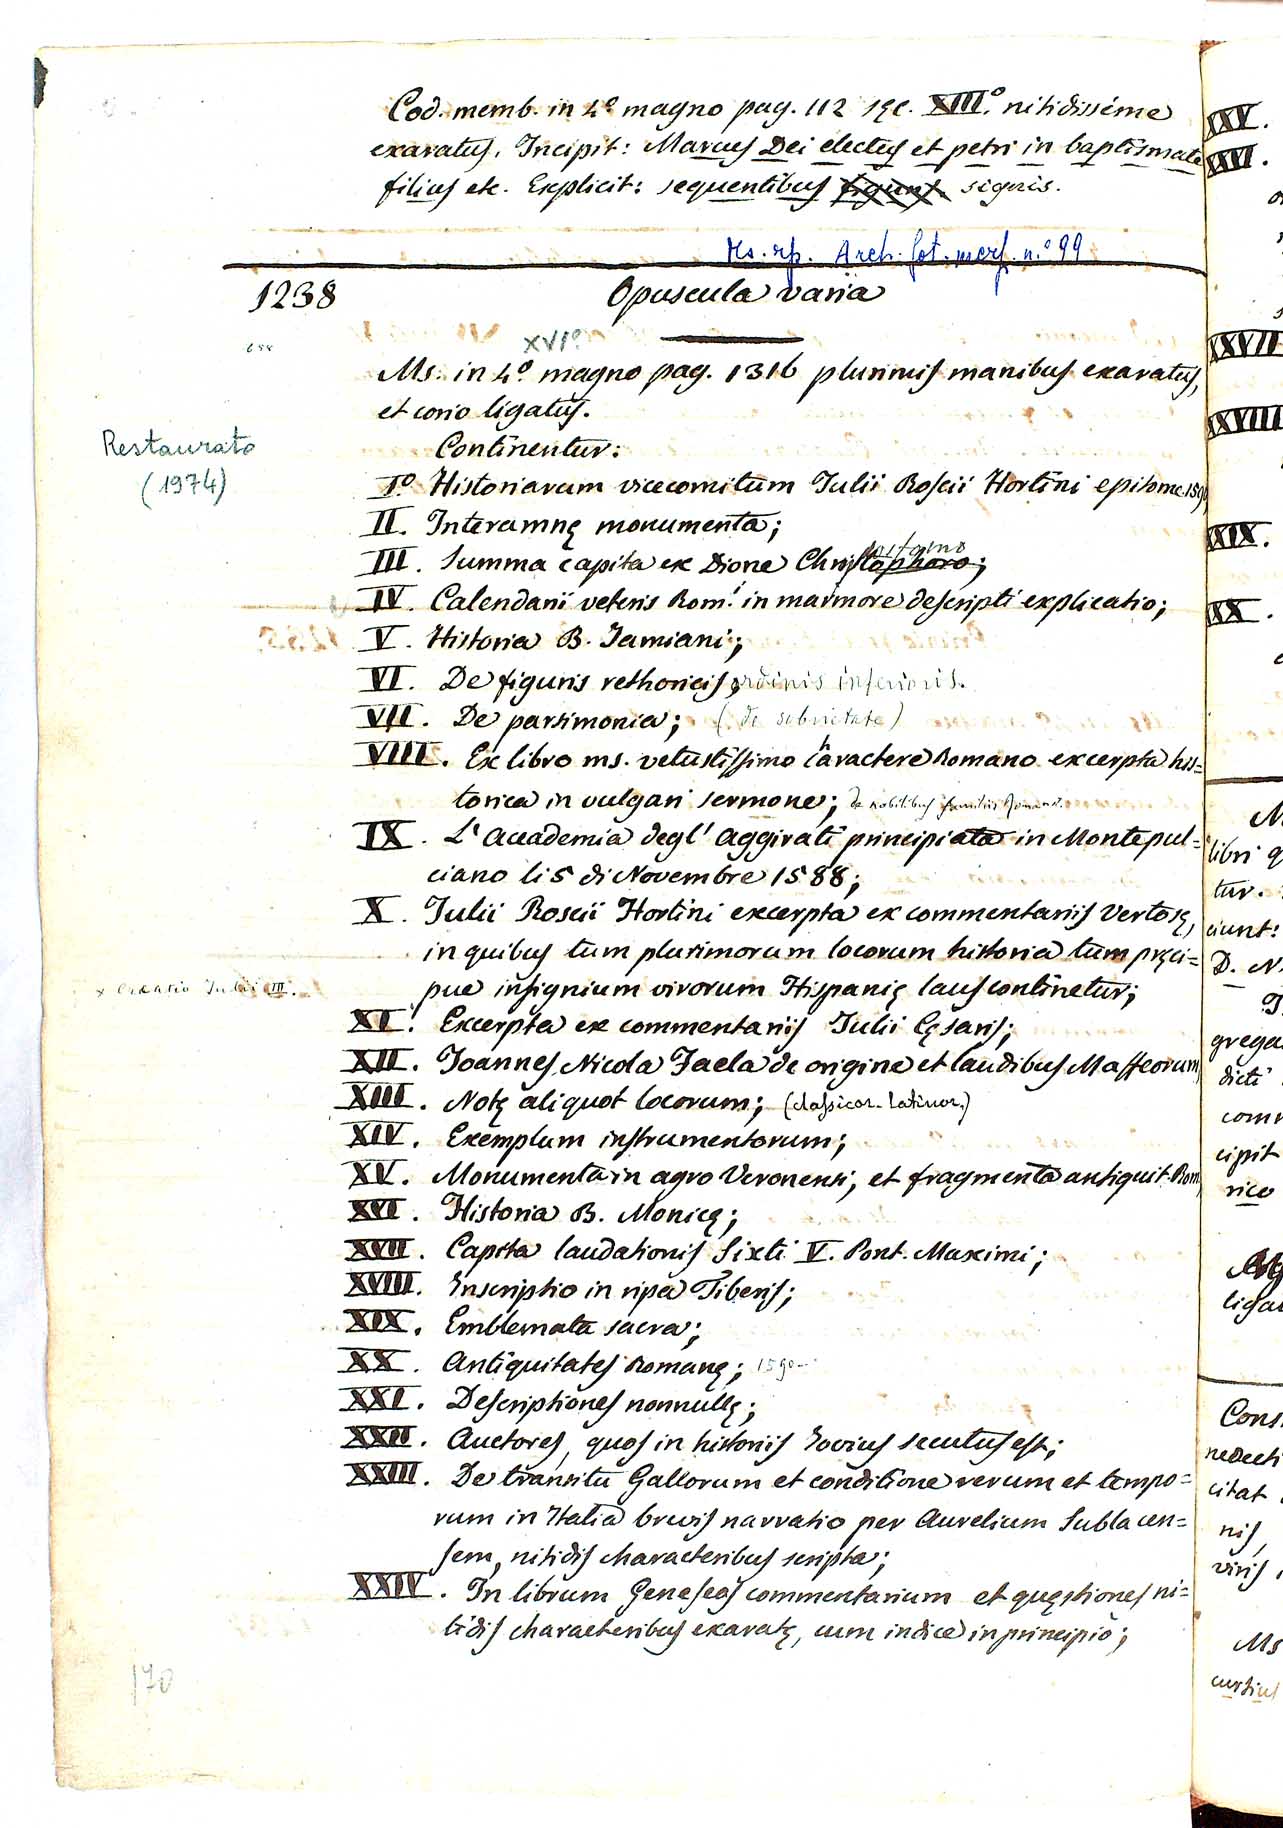 Cod. memb. in 4º magno pag. 112 sęc. XIIIº. nitidissime
exaratus. Incipit: Marcus Dei electus et petri in baptismate
filius etc. Explicit: sequentibus signis.
Arch. fot. n.º 99
1238 Opuscula varia
658
XVIº
Ms. in 4º magno pag. 1316 plurimis manibus exaratus,
et corio ligatus.
Restaurato
(1974)
Continentur:
Iº Historiarum vicecomitum Julii Roscii Hortini epitome
II. Interamnę monumenta;
III. Summa capita ex Dione Christophoro;
IV. Calendarii veteris Rom. in marmore descripti explicatio;
V. Historia B. Jamiani;
VI. De figuris rethoricis, ordinis inferioris.
VII. De parsimonia; (de sobrietate)
VIII. Ex libro ms. vetustissimo charactere Romano excerpta his=
torica in vulgari sermone; de nobilibus familiis Roman.
IX. L'Accademia degl' Aggirati principiata in Montepul=
ciano li 5 di Novembre 1588;
X. Julii Roscii Hortini excerpta ex commentariis Vertosę,
in quibus tum plurimorum locorum historia tum pręci=
pue insignium virorum Hispanię laus continetur;
x Creatio Julii III.
XI. Excerpta ex commentariis Julii Cęsaris;
XII. Joannes Nicola Jaela de origine et laudibus Maffeorum
XIII. Notę aliquot locorum; (classicor. latinor.)
XIV. Exemplum instrumentorum;
XV. Monumenta in agro Veronensi, et fragmenta antiquit. Rom
XVI. Historia B. Monicę;
XVII. Capita laudationis Sixti V. Pont. Maximi;
XVIII. Inscriptio in ripa Tiberis;
XIX. Emblemata sacra;
XX. Antiquitates Romanę; 1590
XXI. Descriptiones nonnullę;
XXII. Auctores, quos in historiis Jovius secutus est;
XXIII. De transitu Gallorum et conditione rerum et tempo=
rum in Italia brevis narratio per Aurelium Sublacen=
sem, nitidis characteribus scripta;
XXIV. In librum Geneseos commentarium et quęstiones ni=
tidis characteribus exaratę, cum indice in principio;
170
XXV.
XXVI.
XXVII
XXVIII
XXIX.
XXX.
libri
tur.
ciunt:
D.
dicti
cipit
rico
Cons
citat
nis,
viris
Ms